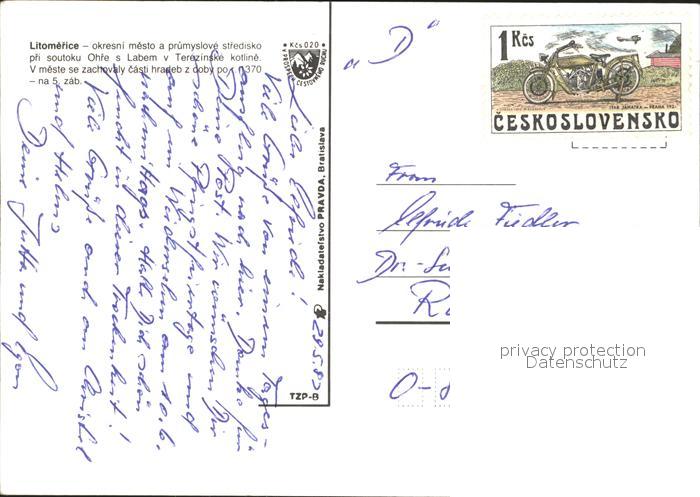 Litoměřice – okresní město a průmyslové středisko
při soutoku Ohře s Labem v Terezínské kotlině.
V městě se zachovaly části hradeb z doby po r. 1370
– na 5. záb.
Kčs 0,20
Nakladateľstvo PRAVDA, Bratislava
TZP-B
29.5.87
Liebe Elfriede!
Viele Grüße von einem Tages-
ausflug nach hier. Danke für
Deine Post. Wir wünschen Dir
schöne Pfingstfeiertage und
auf ein Wiedersehen am 10.6.
Halt Dich
Viele Grüße auch an Christel
und Heinz
Deine Jutta und Egon
„D“
1 Kčs
ČESKOSLOVENSKO
Frau
Elfriede Fiedler
Dr.-
O-
privacy protection
Datenschutz